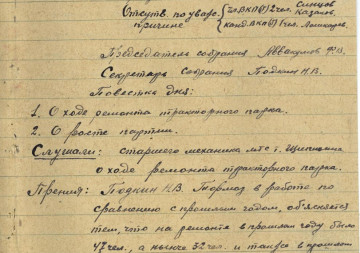 Отсутв. по уваро. {чл. ВКП(б) 2 чел. Синцов
Казаков.
причине {канд. ВКП(б) 1 чел.
Председатель собрания Аввакумов Ф.В.
Секретарь собрания Подкин Н.В.
Повестка дня:
1. О ходе ремонта тракторного парка.
2. О росте партии.
Слушали: старшего механика мтс т. Шипицина
о ходе ремонта тракторного парка.
Прения: Подкин Н.В. Тормоз в работе по
сравнению с прошлым годом, объясняется
тем, что на ремонте в прошлом году было
47 чел., а нынче 32 чел. и также в прошлом